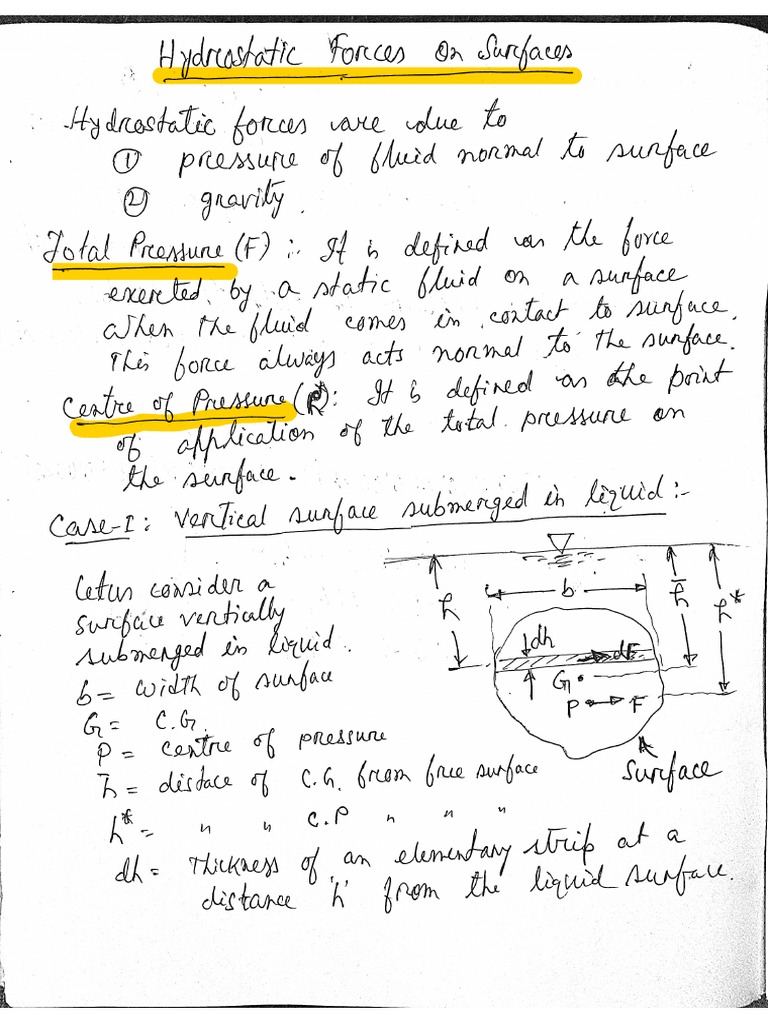 Hydrostatic Forces on Surfaces
Hydrostatic forces are due to
① pressure of fluid normal to surface
② gravity.
Total Pressure (F) :. It is defined as the force
exerted by a static fluid on a surface
when the fluid comes in contact to surface.
This force always acts normal to the surface.
Centre of Pressure (P): It is defined as the point
of application of the total pressure on
the surface.
Case-I: Vertical surface submerged in liquid:-
Let us consider a
surface vertically
submerged in liquid.
b = width of surface
G = C.G.
P = centre of pressure
h̄ = distace of C.G. from free surface
h* = " " C.P " " "
dh = Thickness of an elementary strip at a
distance 'h' from the liquid surface.
h
b
h̄
h*
dh
dF
G
P
F
Surface